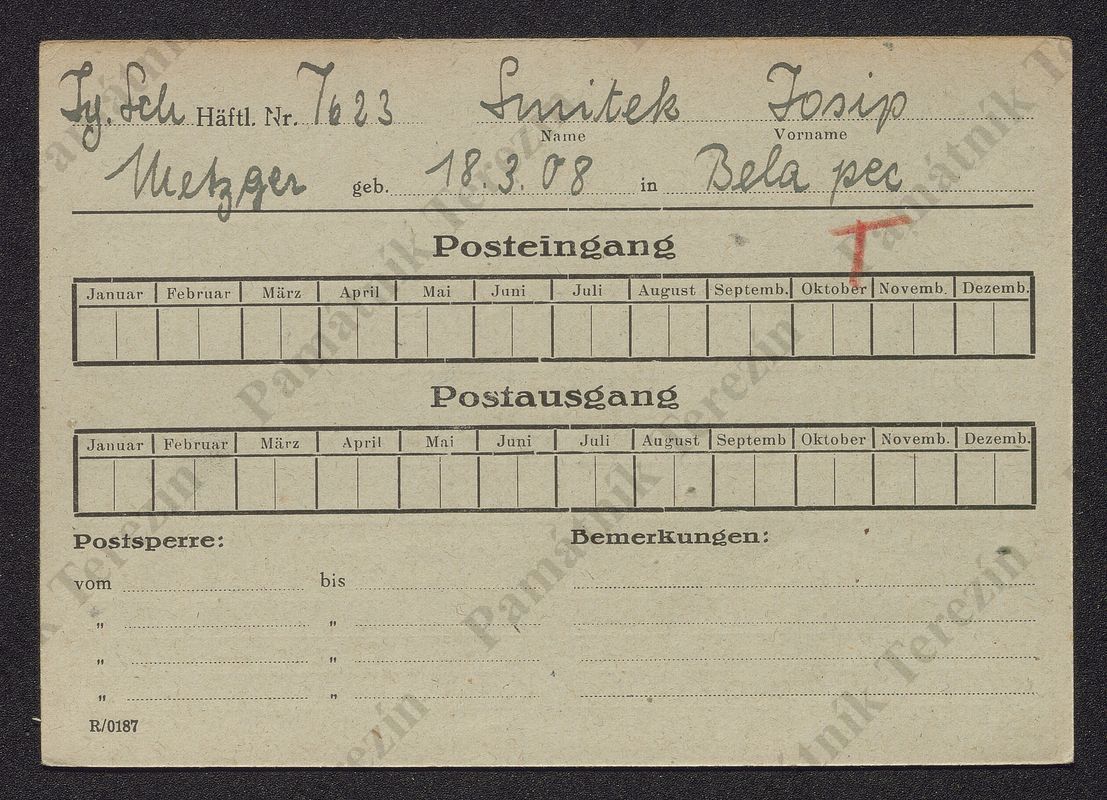 Jg. Sch Häftl. Nr. 7623 Smitek Josip
Name Vorname
Metzger geb. 18.3.08 in Bela pec
T
Posteingang
Januar Februar März April Mai Juni Juli August Septemb. Oktober Novemb. Dezemb.
Postausgang
Januar Februar März April Mai Juni Juli August Septemb Oktober Novemb. Dezemb.
Postsperre: Bemerkungen:
vom bis
" "
" "
" "
R/0187
Památník Terezín